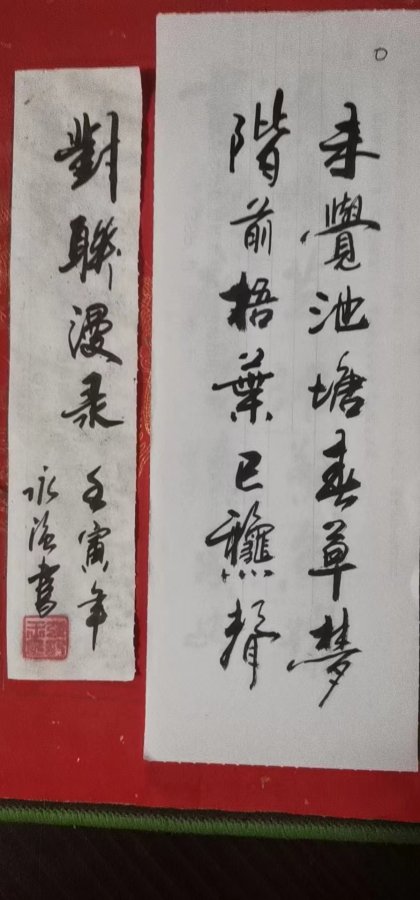 未覺池塘春草夢
階前梧葉已龝聲
對聯漫录
壬寅年
永書